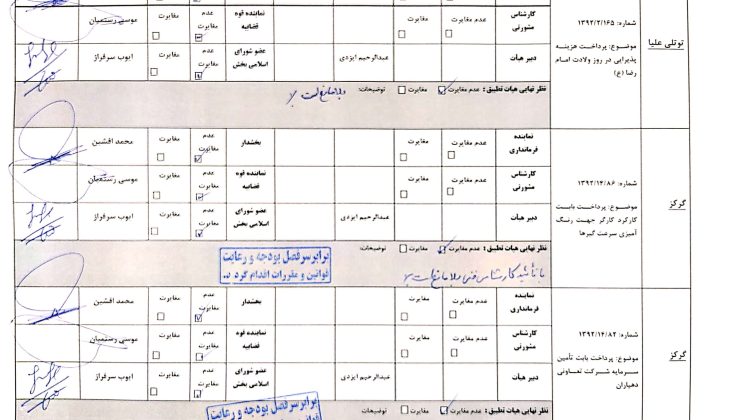 توتلی علیا
شماره: ۱۳۹۲/۲/۱۶۵
موضوع: پرداخت هزینه
پذیرایی در روز ولادت امام
رضا (ع)
کارشناس مشورتی
عدم مغایرت
مغایرت
نماینده قوه قضاییه
عدم مغایرت
مغایرت
موسی رستمیان
دبیر هیات
عبدالرحیم ایزدی
عضو شورای اسلامی بخش
عدم مغایرت
مغایرت
ایوب سرفراز
نظر نهایی هیات تطبیق: عدم مغایرت مغایرت توضیحات:
بلامانع است
گرکز
شماره: ۱۳۹۲/۱۴/۸۶
موضوع: پرداخت بابت
کارکرد کارگر جهت رنگ
آمیزی سرعت گیرها
نماینده فرمانداری
عدم مغایرت
مغایرت
بخشدار
عدم مغایرت
مغایرت
محمد افشین
کارشناس مشورتی
عدم مغایرت
مغایرت
نماینده قوه قضاییه
عدم مغایرت
مغایرت
موسی رستمیان
دبیر هیات
عبدالرحیم ایزدی
عضو شورای اسلامی بخش
عدم مغایرت
مغایرت
ایوب سرفراز
نظر نهایی هیات تطبیق: عدم مغایرت مغایرت توضیحات:
برابر سرفصل بودجه و رعایت
قوانین و مقررات اقدام گردد
با تأئید کارشناس فنی بلامانع است
گرکز
شماره: ۱۳۹۲/۱۴/۸۲
موضوع: پرداخت بابت تأمین
سرمایه شرکت تعاونی
دهیاران
نماینده فرمانداری
عدم مغایرت
مغایرت
بخشدار
عدم مغایرت
مغایرت
محمد افشین
کارشناس مشورتی
عدم مغایرت
مغایرت
نماینده قوه قضاییه
عدم مغایرت
مغایرت
موسی رستمیان
دبیر هیات
عبدالرحیم ایزدی
عضو شورای اسلامی بخش
عدم مغایرت
مغایرت
ایوب سرفراز
نظر نهایی هیات تطبیق: عدم مغایرت مغایرت توضیحات:
برابر سرفصل بودجه و رعایت